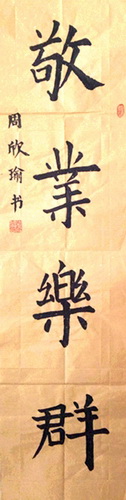 敬業樂群
周欣瑜书